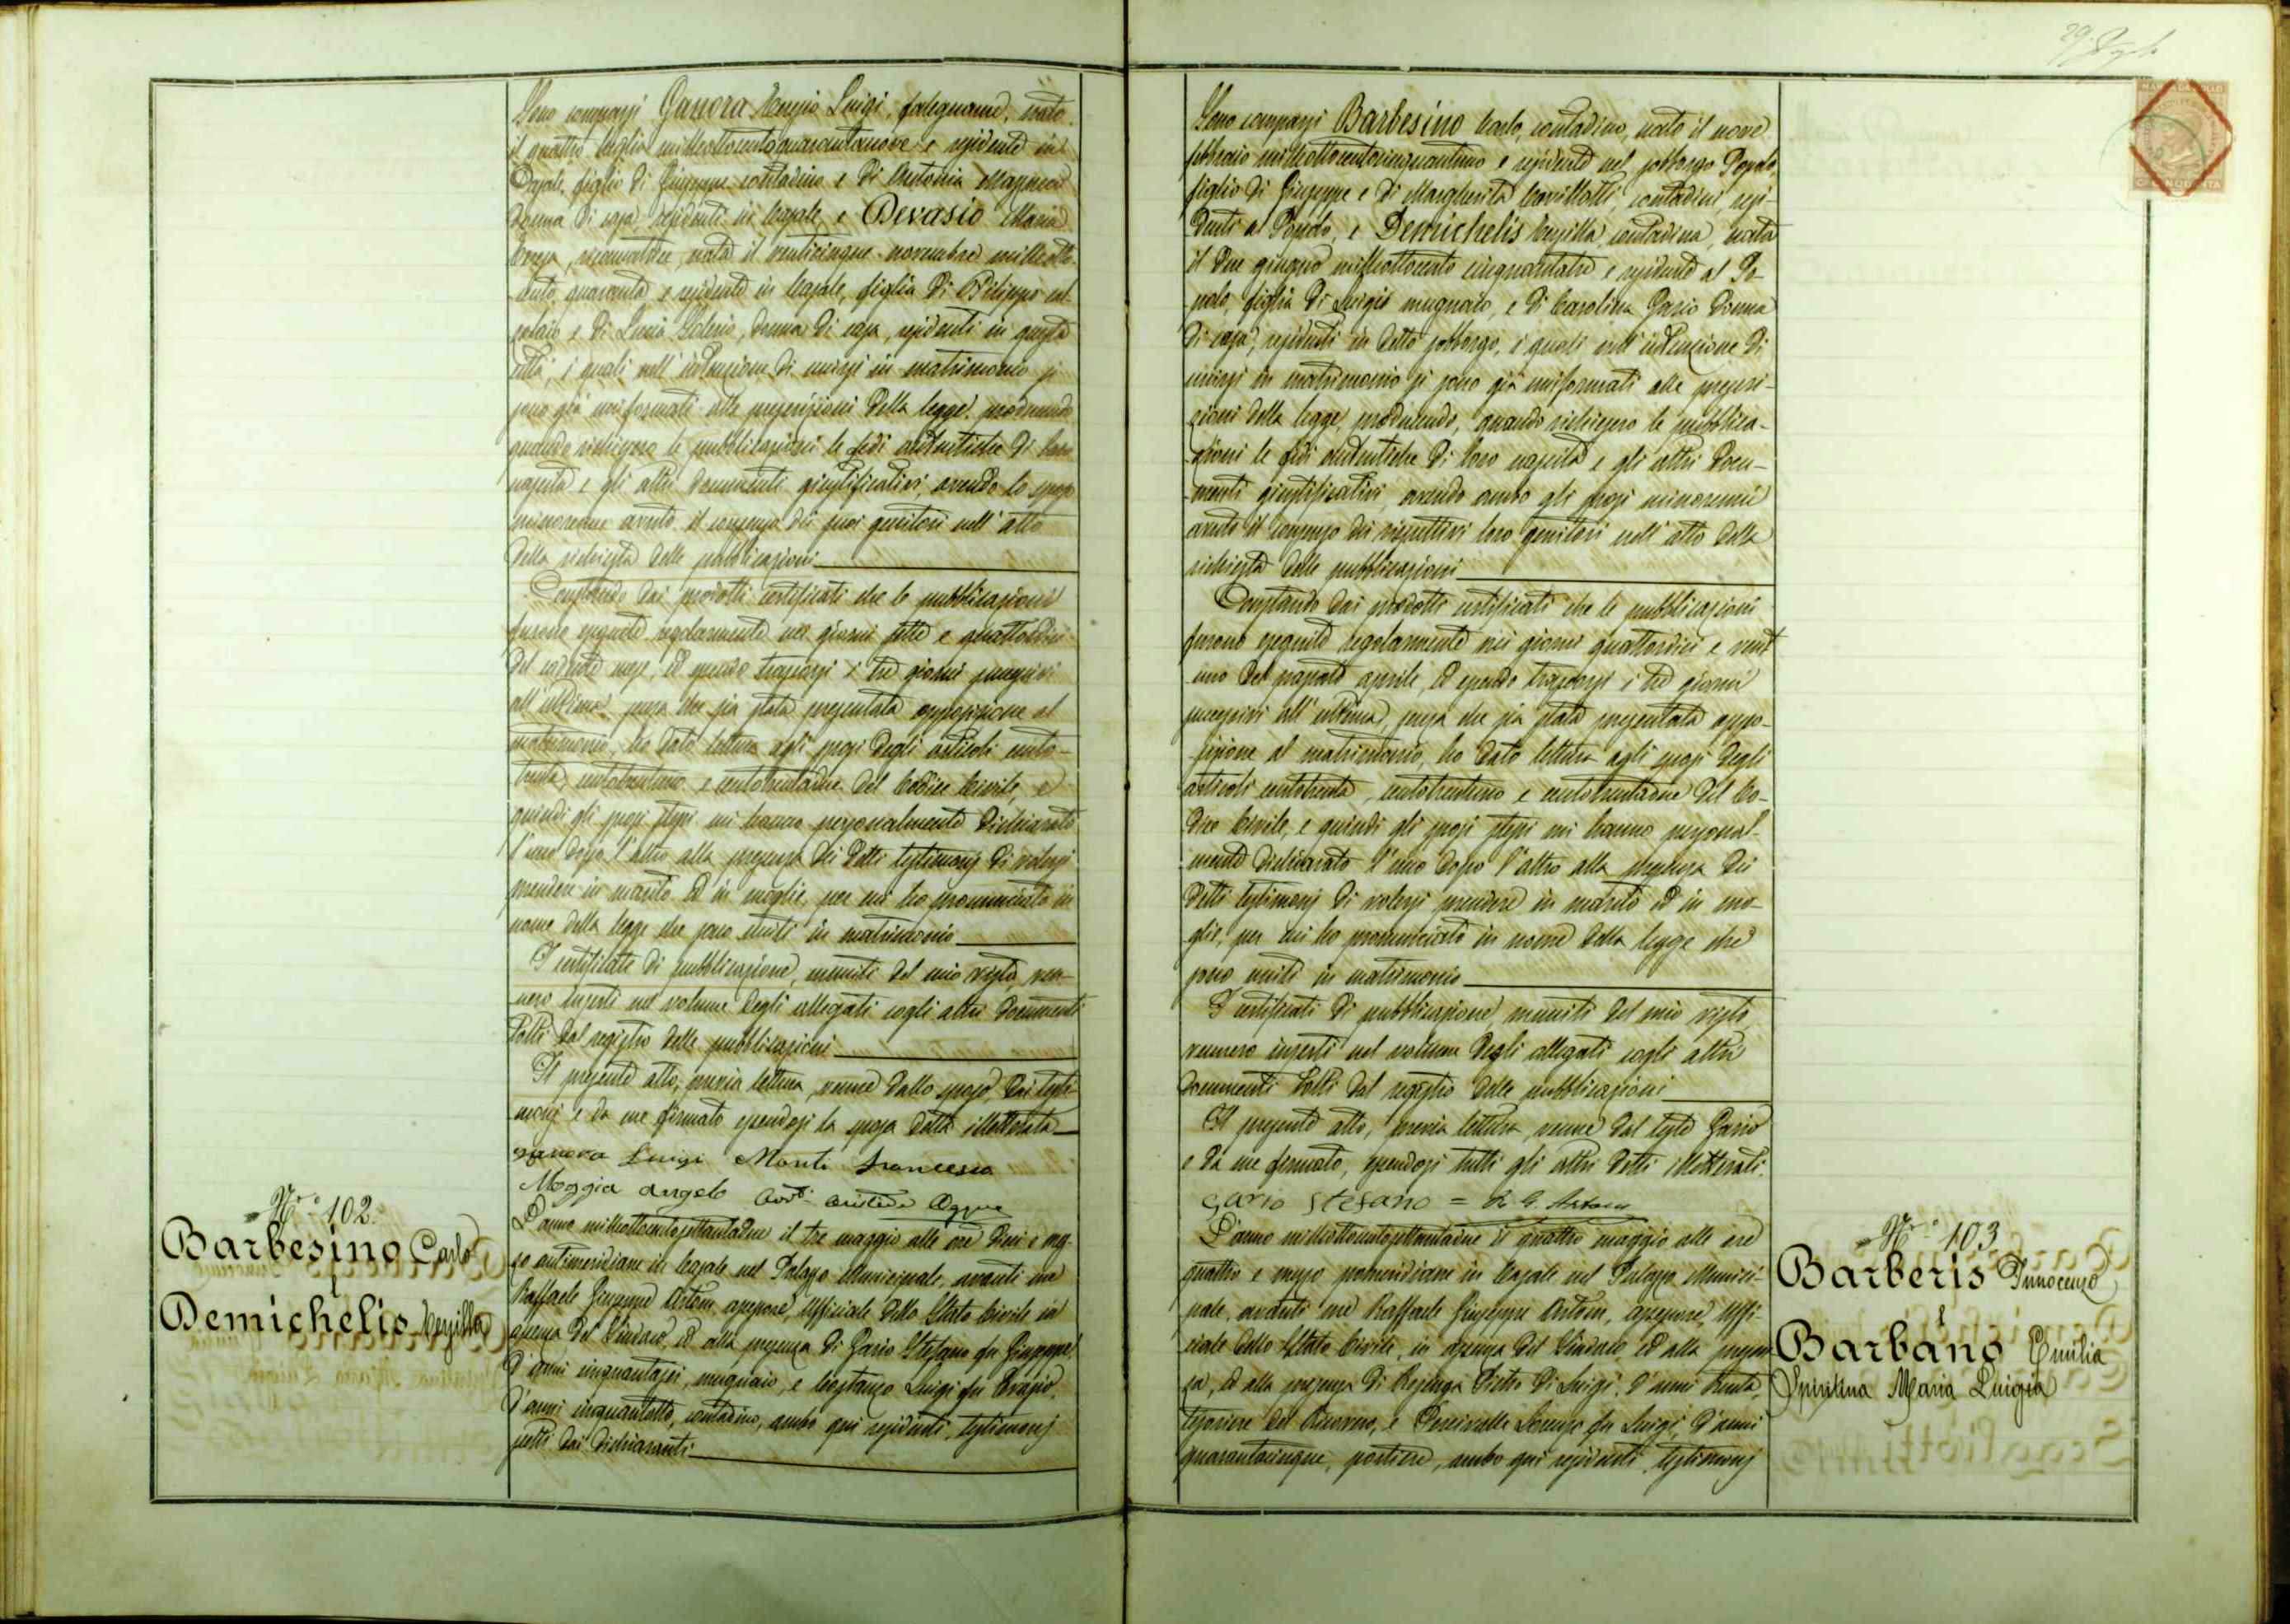 Sono comparsi Ganora Luigi, falegname, nato
il quattro luglio milleottocentoquarantanove e residente in
Casale, figlio di Giuseppe contadino e di Antonia
donna di casa, residenti in Casale, e Devasio Maria
nata il venticinque novembre milleotto-
cento quaranta e residente in Casale, figlia di Filippo
e di Lucia donna di casa, residenti in questa
città, i quali nell'intenzione di unirsi in matrimonio si
sono già uniformati alle prescrizioni della legge producendo
quando richiesero le pubblicazioni le fedi autentiche di loro
nascita e gli altri documenti giustificativi, avendo lo sposo
minorenne avuto il consenso dei suoi genitori nell'atto
della richiesta delle pubblicazioni
Constando dai prodotti certificati che le pubblicazioni
furono eseguite regolarmente nei giorni sette e quattordici
del corrente mese, ed essendo trascorsi i tre giorni successivi
all'ultima, senza che sia stata presentata opposizione al
matrimonio, ho dato lettura agli sposi degli articoli cento-
trenta, centotrentuno e centotrentadue del Codice Civile, e
quindi gli sposi stessi mi hanno personalmente dichiarato
l'uno dopo l'altro alla presenza dei detti testimonj di volersi
prendere in marito ed in moglie, per cui ho pronunciato in
nome della legge che sono uniti in matrimonio
I certificati di pubblicazione, muniti del mio visto, ven-
nero inserti nel volume degli allegati cogli altri documenti
tolti dal registro delle pubblicazioni
Il presente atto, previa lettura, venne dallo sposo, dai testi-
monj e da me firmato essendosi la sposa detta illetterata
Ganora Luigi Monti Francesco
Moggia Angelo
N.° 102.
Barbesino Carlo
e
Demichelis Ersilia
L'anno milleottocentosettantadue il tre maggio alle ore dieci e mez-
zo antimeridiane in Casale nel Palazzo Municipale, avanti me
Raffaele Giuseppe Artom, assessore, Uffiziale dello Stato Civile in
assenza del Sindaco, ed alla presenza di Gario Stefano fu Giuseppe,
d'anni cinquantasei, mugnaio, e Costanzo Luigi fu
d'anni cinquantotto, contadino, ambo qui residenti, testimonj
scelti dai dichiaranti
Sono comparsi Barbesino Carlo, contadino, nato il nove
febbraio milleottocentocinquantuno e residente nel sobborgo Popolo,
figlio di Giuseppe e di Margherita contadini, resi-
denti al Popolo, e Demichelis Ersilia, contadina, nata
il due giugno milleottocento cinquantatre e residente al Po-
polo, figlia di Luigi mugnaio, e di Carolina Gario donna
di casa, residenti in detto sobborgo, i quali nell'intenzione di
unirsi in matrimonio si sono già uniformati alle prescri-
zioni della legge, producendo, quando richiesero le pubblica-
zioni le fedi autentiche di loro nascita e gli altri docu-
menti giustificativi, avendo ambo gli sposi minorenni
avuto il consenso dei rispettivi loro genitori nell'atto della
richiesta delle pubblicazioni
Constando dai prodotti certificati che le pubblicazioni
furono eseguite regolarmente nei giorni quattordici e vent'
uno del passato aprile, ed essendo trascorsi i tre giorni
successivi all'ultima, senza che sia stata presentata oppo-
sizione al matrimonio, ho dato lettura agli sposi degli
articoli centotrenta, centotrentuno e centotrentadue del Co-
dice Civile, e quindi gli sposi stessi mi hanno personal-
mente dichiarato l'uno dopo l'altro alla presenza dei
detti testimonj di volersi prendere in marito ed in mo-
glie, per cui ho pronunciato in nome della legge che
sono uniti in matrimonio
I certificati di pubblicazione, muniti del mio visto
vennero inserti nel volume degli allegati cogli altri
documenti tolti dal registro delle pubblicazioni
Il presente atto, previa lettura, venne dal teste Gario
e da me firmato, essendosi tutti gli altri detti illetterati.
Gario Stefano = R. G. Artom
L'anno milleottocentosettantadue il quattro maggio alle ore
quattro e mezzo pomeridiane in Casale nel Palazzo Munici-
pale, avanti me Raffaele Giuseppe Artom, assessore, Uffi-
ziale dello Stato Civile, in assenza del Sindaco, ed alla presen-
za, ed alla presenza di Pietro di Luigi, d'anni trenta,
e Lorenzo fu Luigi, d'anni
quarantacinque, portiere, ambo qui residenti, testimonj
N.° 103
Barberis Innocenzo
e
Barbano Emilia
Spiritina Maria Luigia